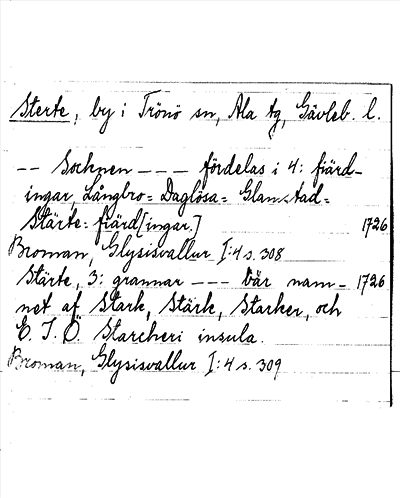 Sterte, by i Trönö sn, Ala tg, Gävleb. l.
-- Sochnen --- fördelas i 4: fiärd-
ingar, Långbro= Daglösa= Glamstad=
Stärte= fiärd[ingar.] 1726
Broman, Glysisvallur I:4 s. 308
Stärte, 3: grannar --- bär nam- 1726
net af Stark, Stärk, Starker, och
E. I. Ö. Starcheri insula.
Broman, Glysisvallur I:4 s. 309